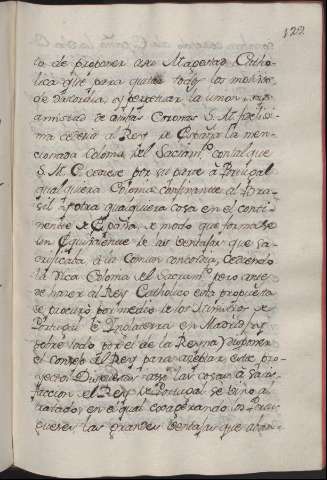 122
to de proponer a su Magestad Catho-
lica, q.e para quitar todos los motivos
de discordia, y perpetuar la union, y
armonia de ambas Coronas S. M. fidelisi-
ma cederia al Rey de España la men-
cionada Colonia del Sacram.to con tal que
S. M. C. cediese por su parte à Portugal
qualquiera Colonia confinante al Bra-
sil, ù otra qualquiera cosa en el conti-
nente de España, de modo que formase
un Equivalente de las ventajas que sa-
crificaba à la comun concordia, cediendo
la rica Colonia del Sacram.to pero antes
de hacer al Rey Catholico esta propuesta
se procurò por medio de los Ministros de
Portugal è Inglaterra en Madrid (y
sobre todo por el de la Reyna) disponer
el consejo del Rey para aceptar este pro-
yecto. Dispuestas assi las cosas à satis-
faccion del Rey de Portugal se vino al
tratado, en el qual exagerando los Portu-
gueses las grandes ventajas que aban-